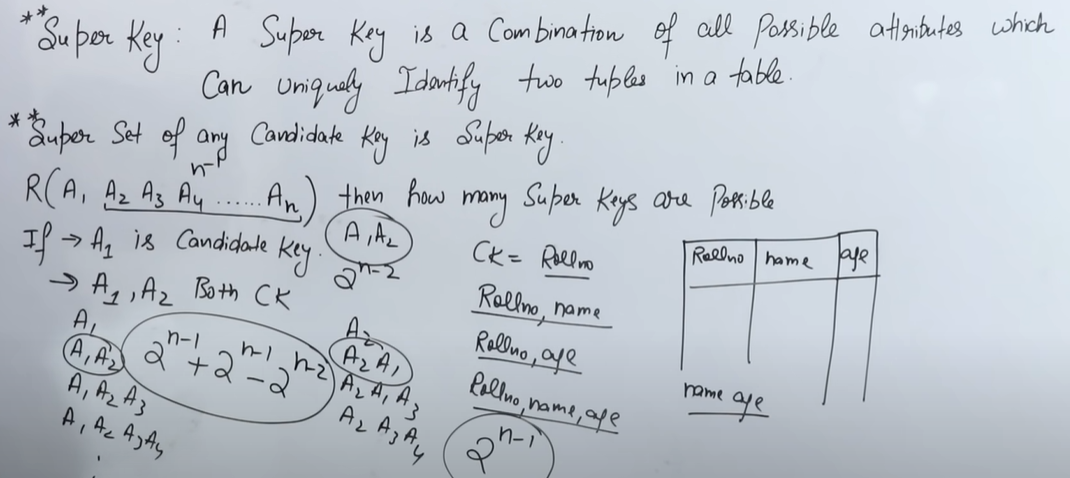 **Super Key: A Super Key is a Combination of all Possible attributes which
Can Uniquely Identify two tuples in a table.
**Super Set of any Candidate Key is Super Key.
n-1
R(A₁ A₂ A₃ A₄ ...... Aₙ) then how many Super Keys are Possible
If → A₁ is Candidate Key.
A₁A₂
2ⁿ⁻²
→ A₁, A₂ Both CK
A₁
A₁A₂
A₁A₂A₃
A₁A₂A₃A₄
.
2ⁿ⁻¹ + 2ⁿ⁻¹ - 2ⁿ⁻²
A₂
A₂A₁
A₂A₁A₃
A₂A₃A₄
CK = Rollno
Rollno, name
Rollno, age
Rollno, name, age
2ⁿ⁻¹
Rollno name age
name age